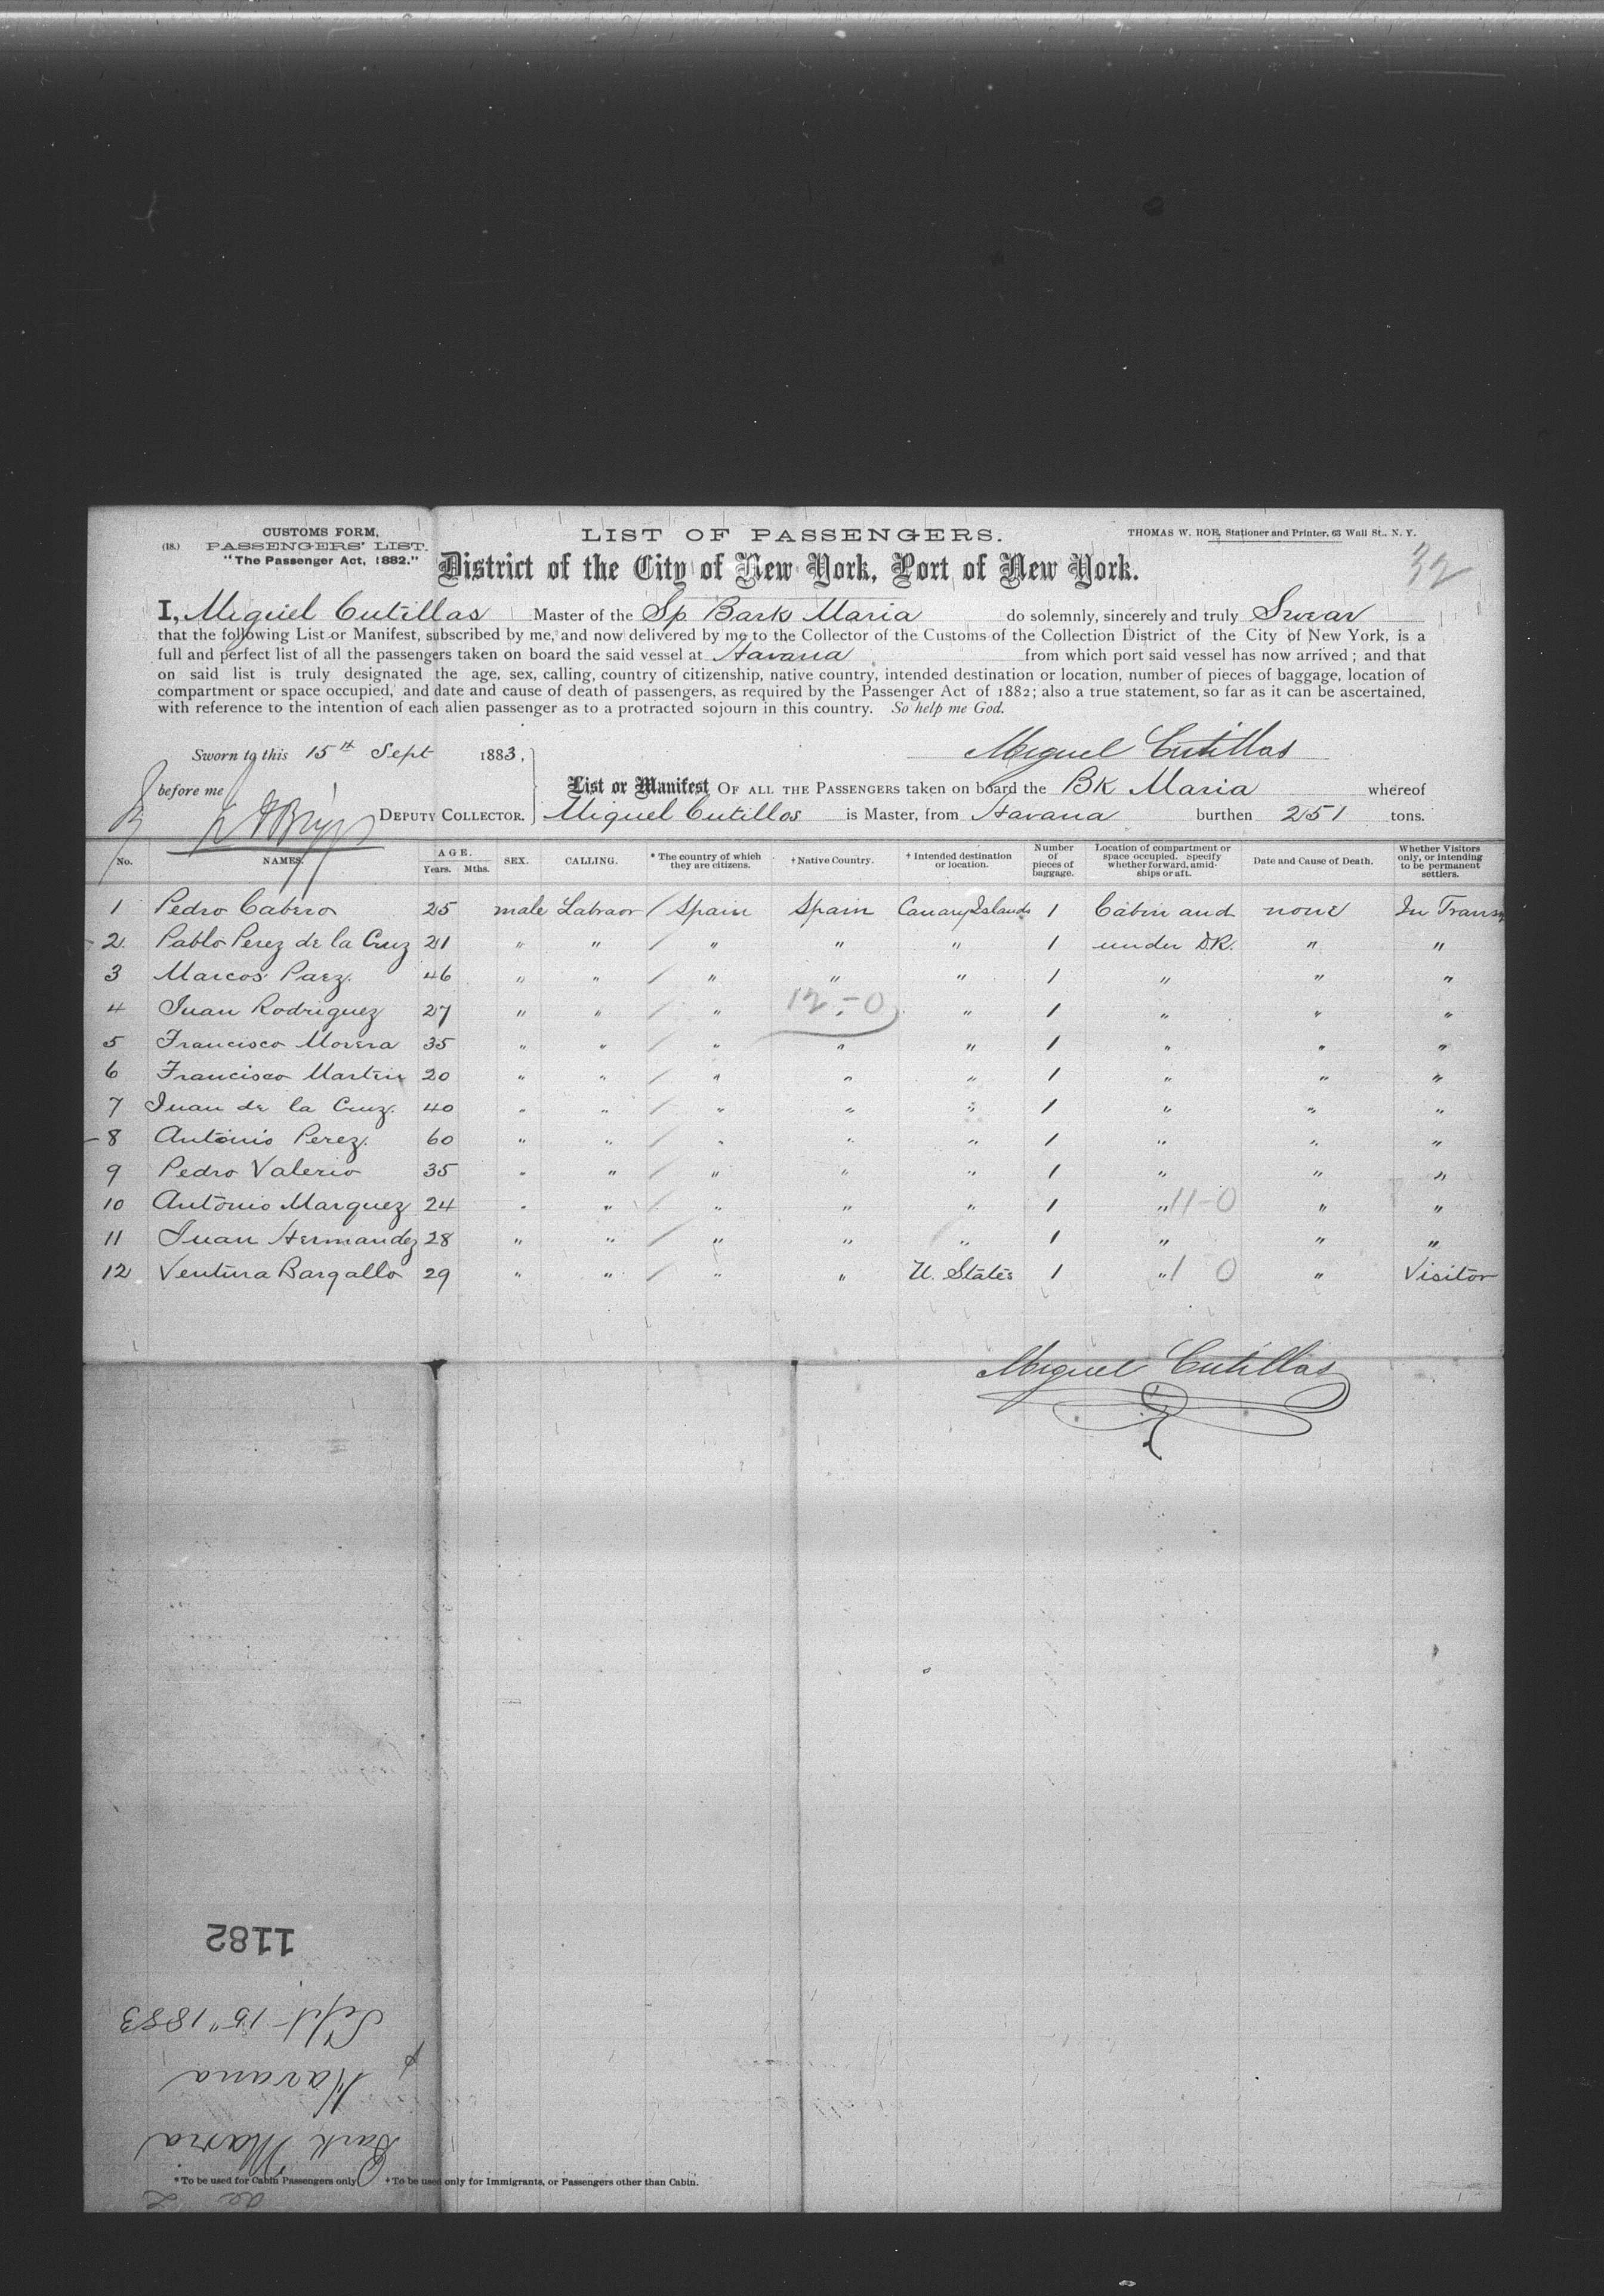 CUSTOMS FORM,
(18.) PASSENGERS' LIST.
"The Passenger Act, 1882."
LIST OF PASSENGERS.
THOMAS W. ROE, Stationer and Printer, 63 Wall St., N. Y.
32
District of the City of New York, Port of New York.
I, Miguel Cutillas Master of the Sp Bark Maria do solemnly, sincerely and truly Swear
that the following List or Manifest, subscribed by me, and now delivered by me to the Collector of the Customs of the Collection District of the City of New York, is a
full and perfect list of all the passengers taken on board the said vessel at Havana from which port said vessel has now arrived; and that
on said list is truly designated the age, sex, calling, country of citizenship, native country, intended destination or location, number of pieces of baggage, location of
compartment or space occupied, and date and cause of death of passengers, as required by the Passenger Act of 1882; also a true statement, so far as it can be ascertained,
with reference to the intention of each alien passenger as to a protracted sojourn in this country. So help me God.
Sworn to this 15th Sept 1883, Miguel Cutillas
before me List or Manifest OF ALL THE PASSENGERS taken on board the Bk Maria whereof
DEPUTY COLLECTOR. Miguel Cutillos is Master, from Havana burthen 251 tons.
No. NAMES. AGE. Years. Mths. SEX. CALLING. * The country of which they are citizens. † Native Country. † Intended destination or location. Number of pieces of baggage. Location of compartment or space occupied. Specify whether forward, amidships or aft. Date and Cause of Death. Whether Visitors only, or intending to be permanent settlers.
1 Pedro Cabero 25 male Labraor / Spain Spain Canary Islands 1 Cabin and none In Trans
2 Pablo Perez de la Cruz 21 " " / " " " 1 under D.K. " "
3 Marcos Paez. 46 " " / " " " 1 " " "
4 Juan Rodriguez 27 " " / " 12-0 " 1 " " "
5 Francisco Morera 35 " " / " " " 1 " " "
6 Francisco Martin 20 " " / " " " 1 " " "
7 Juan de la Cruz. 40 " " / " " " 1 " " "
8 Antonio Perez. 60 " " / " " " 1 " " "
9 Pedro Valerio 35 " " / " " " 1 " " "
10 Antonio Marquez 24 " " / " " " 1 " 11-0 " "
11 Juan Hernandez 28 " " / " " " 1 " " "
12 Ventura Bargallo 29 " " / " " U. States 1 " 1 0 " Visitor
Miguel Cutillas
1182
Sept 15" 1883
Havana
Bark Maria
* To be used for Cabin Passengers only. † To be used only for Immigrants, or Passengers other than Cabin.